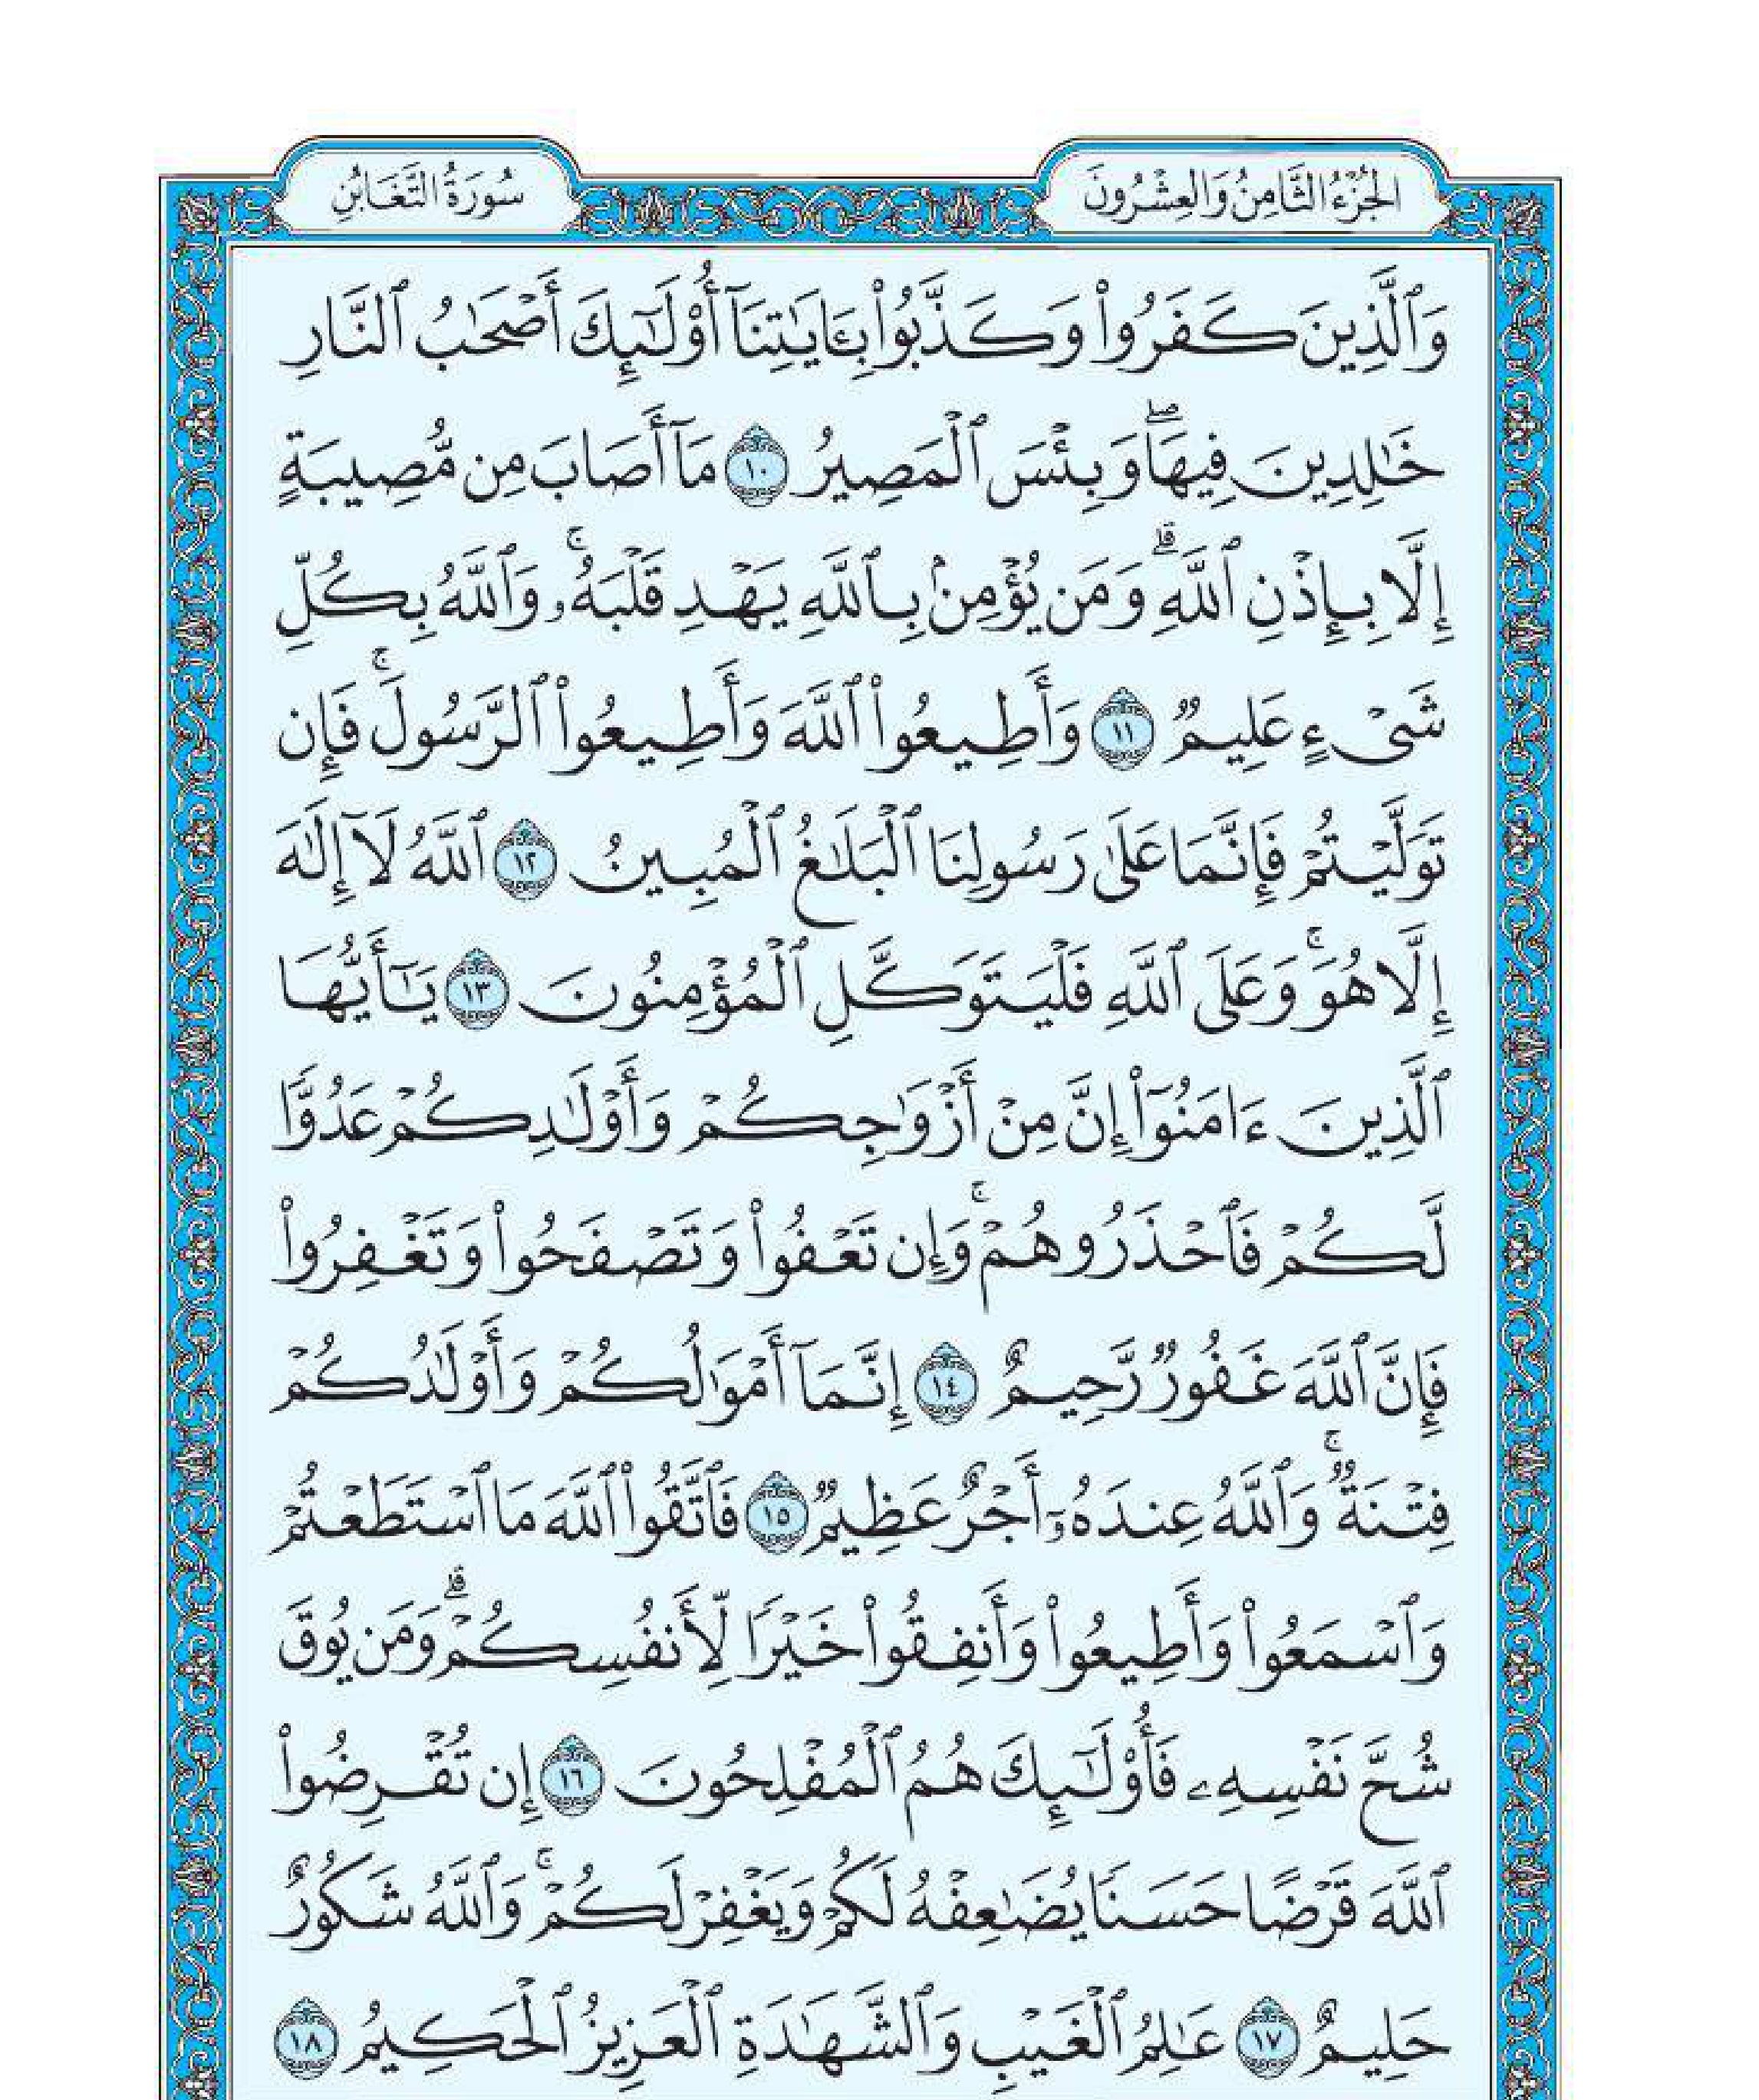 الجُزْءُ الثَّامِنُ وَالعِشْرُونَ
سُورَةُ التَّغَابُنِ
وَٱلَّذِينَ كَفَرُوا۟ وَكَذَّبُوا۟ بِـَٔايَـٰتِنَآ أُو۟لَـٰٓئِكَ أَصْحَـٰبُ ٱلنَّارِ
خَـٰلِدِينَ فِيهَا ۖ وَبِئْسَ ٱلْمَصِيرُ ١٠ مَآ أَصَابَ مِن مُّصِيبَةٍ
إِلَّا بِإِذْنِ ٱللَّهِ ۗ وَمَن يُؤْمِنۢ بِٱللَّهِ يَهْدِ قَلْبَهُۥ ۚ وَٱللَّهُ بِكُلِّ
شَىْءٍ عَلِيمٌ ١١ وَأَطِيعُوا۟ ٱللَّهَ وَأَطِيعُوا۟ ٱلرَّسُولَ ۚ فَإِن
تَوَلَّيْتُمْ فَإِنَّمَا عَلَىٰ رَسُولِنَا ٱلْبَلَـٰغُ ٱلْمُبِينُ ١٢ ٱللَّهُ لَآ إِلَـٰهَ
إِلَّا هُوَ ۚ وَعَلَى ٱللَّهِ فَلْيَتَوَكَّلِ ٱلْمُؤْمِنُونَ ١٣ يَـٰٓأَيُّهَا
ٱلَّذِينَ ءَامَنُوٓا۟ إِنَّ مِنْ أَزْوَٰجِكُمْ وَأَوْلَـٰدِكُمْ عَدُوًّا
لَّكُمْ فَٱحْذَرُوهُمْ ۚ وَإِن تَعْفُوا۟ وَتَصْفَحُوا۟ وَتَغْفِرُوا۟
فَإِنَّ ٱللَّهَ غَفُورٌ رَّحِيمٌ ١٤ إِنَّمَآ أَمْوَٰلُكُمْ وَأَوْلَـٰدُكُمْ
فِتْنَةٌ ۚ وَٱللَّهُ عِندَهُۥٓ أَجْرٌ عَظِيمٌ ١٥ فَٱتَّقُوا۟ ٱللَّهَ مَا ٱسْتَطَعْتُمْ
وَٱسْمَعُوا۟ وَأَطِيعُوا۟ وَأَنفِقُوا۟ خَيْرًا لِّأَنفُسِكُمْ ۗ وَمَن يُوقَ
شُحَّ نَفْسِهِۦ فَأُو۟لَـٰٓئِكَ هُمُ ٱلْمُفْلِحُونَ ١٦ إِن تُقْرِضُوا۟
ٱللَّهَ قَرْضًا حَسَنًا يُضَـٰعِفْهُ لَكُمْ وَيَغْفِرْ لَكُمْ ۚ وَٱللَّهُ شَكُورٌ
حَلِيمٌ ١٧ عَـٰلِمُ ٱلْغَيْبِ وَٱلشَّهَـٰدَةِ ٱلْعَزِيزُ ٱلْحَكِيمُ ١٨